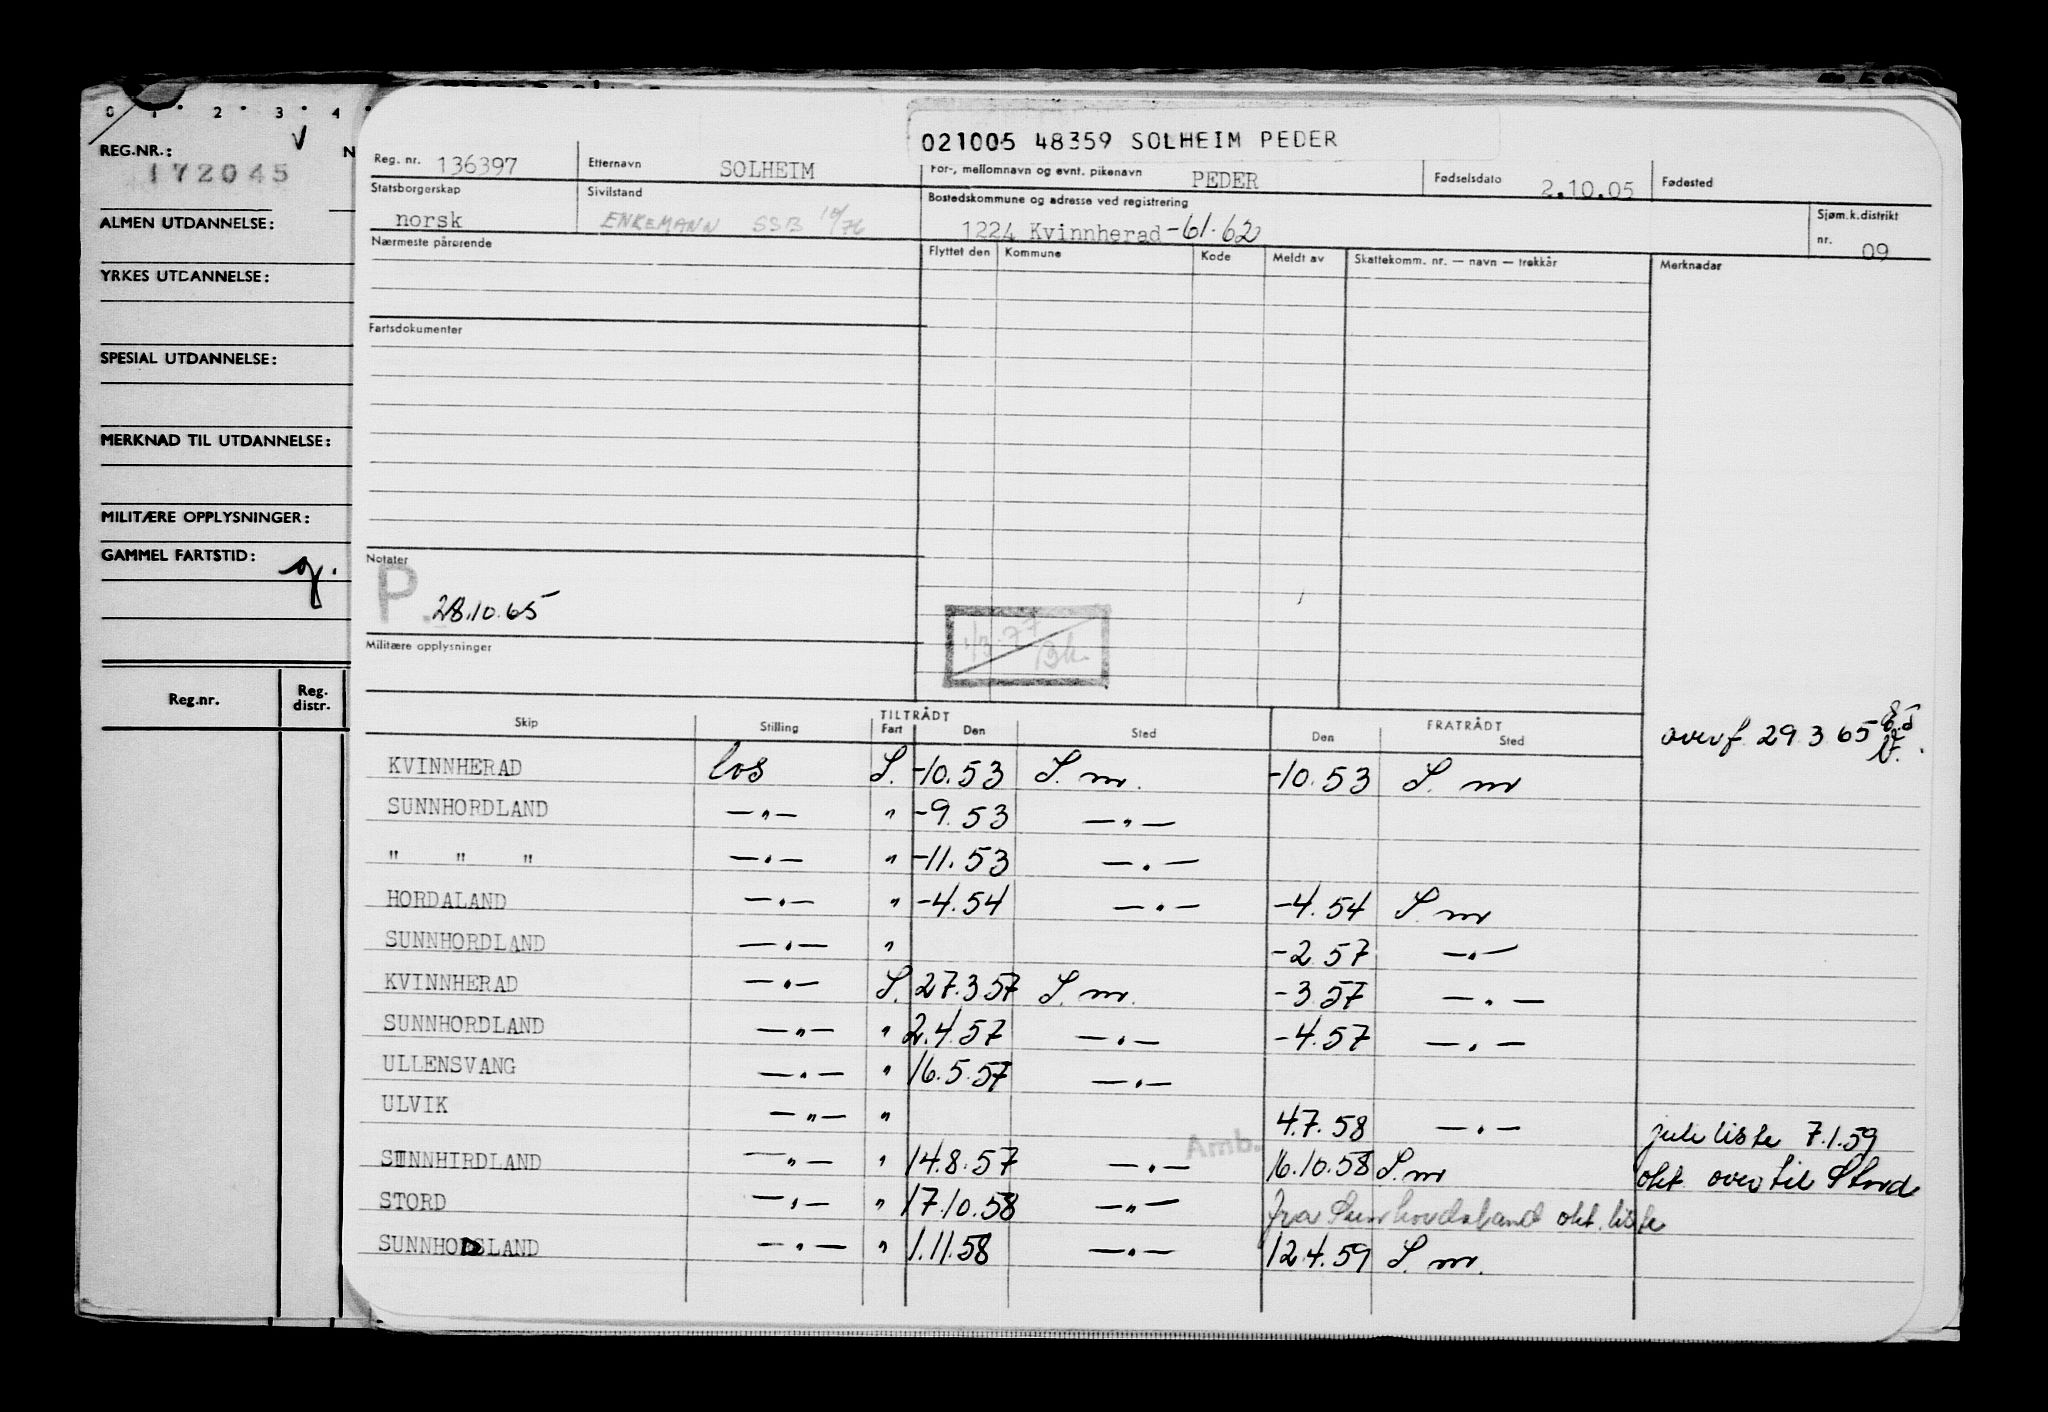 0 1 2 3 4
REG.NR.: N
172045
ALMEN UTDANNELSE:
YRKES UTDANNELSE:
SPESIAL UTDANNELSE:
MERKNAD TIL UTDANNELSE:
MILITÆRE OPPLYSNINGER:
GAMMEL FARTSTID:
Reg.nr. Reg. distr.
021005 48359 SOLHEIM PEDER
Reg. nr. 136397 Etternavn SOLHEIM For-, mellomnavn og evnt. pikenavn PEDER Fødselsdato 2.10.05 Fødested
Statsborgerskap norsk Sivilstand ENKEMANN SSB Bostedskommune og adresse ved registrering 1224 Kvinnherad -61-62 Sjøm.k.distrikt nr. 09
Nærmeste pårørende Flyttet den Kommune Kode Meldt av Skattekomm. nr. — navn — trekkår Merknader
Fartsdokumenter
Notater
P. 28.10.65
1/3-77 Bk.
Militære opplysninger
TILTRÅDT FRATRÅDT
Skip Stilling Fart Den Sted Den Sted
overf. 29.3.65
KVINNHERAD los S. -10.53 S. m. -10.53 S. m
SUNNHORDLAND —"— " -9.53 —"—
" " " —"— " -11.53 —"—
HORDALAND —"— " -4.54 —"— -4.54 S. m
SUNNHORDLAND —"— " -2.57 —"—
KVINNHERAD —"— S. 27.3.57 S. m. -3.57 —"—
SUNNHORDLAND —"— " 2.4.57 —"— -4.57 —"—
ULLENSVANG —"— " 16.5.57 —"—
ULVIK —"— " 4.7.58 —"— juli liste 7.1.59
Amb.
SUNNHIRDLAND —"— " 14.8.57 —"— 16.10.58 S. m okt. over til Stord
STORD —"— " 17.10.58 —"— fra Sunnhordaland okt. liste
SUNNHORDLAND —"— " 1.11.58 —"— 12.4.59 S. m.